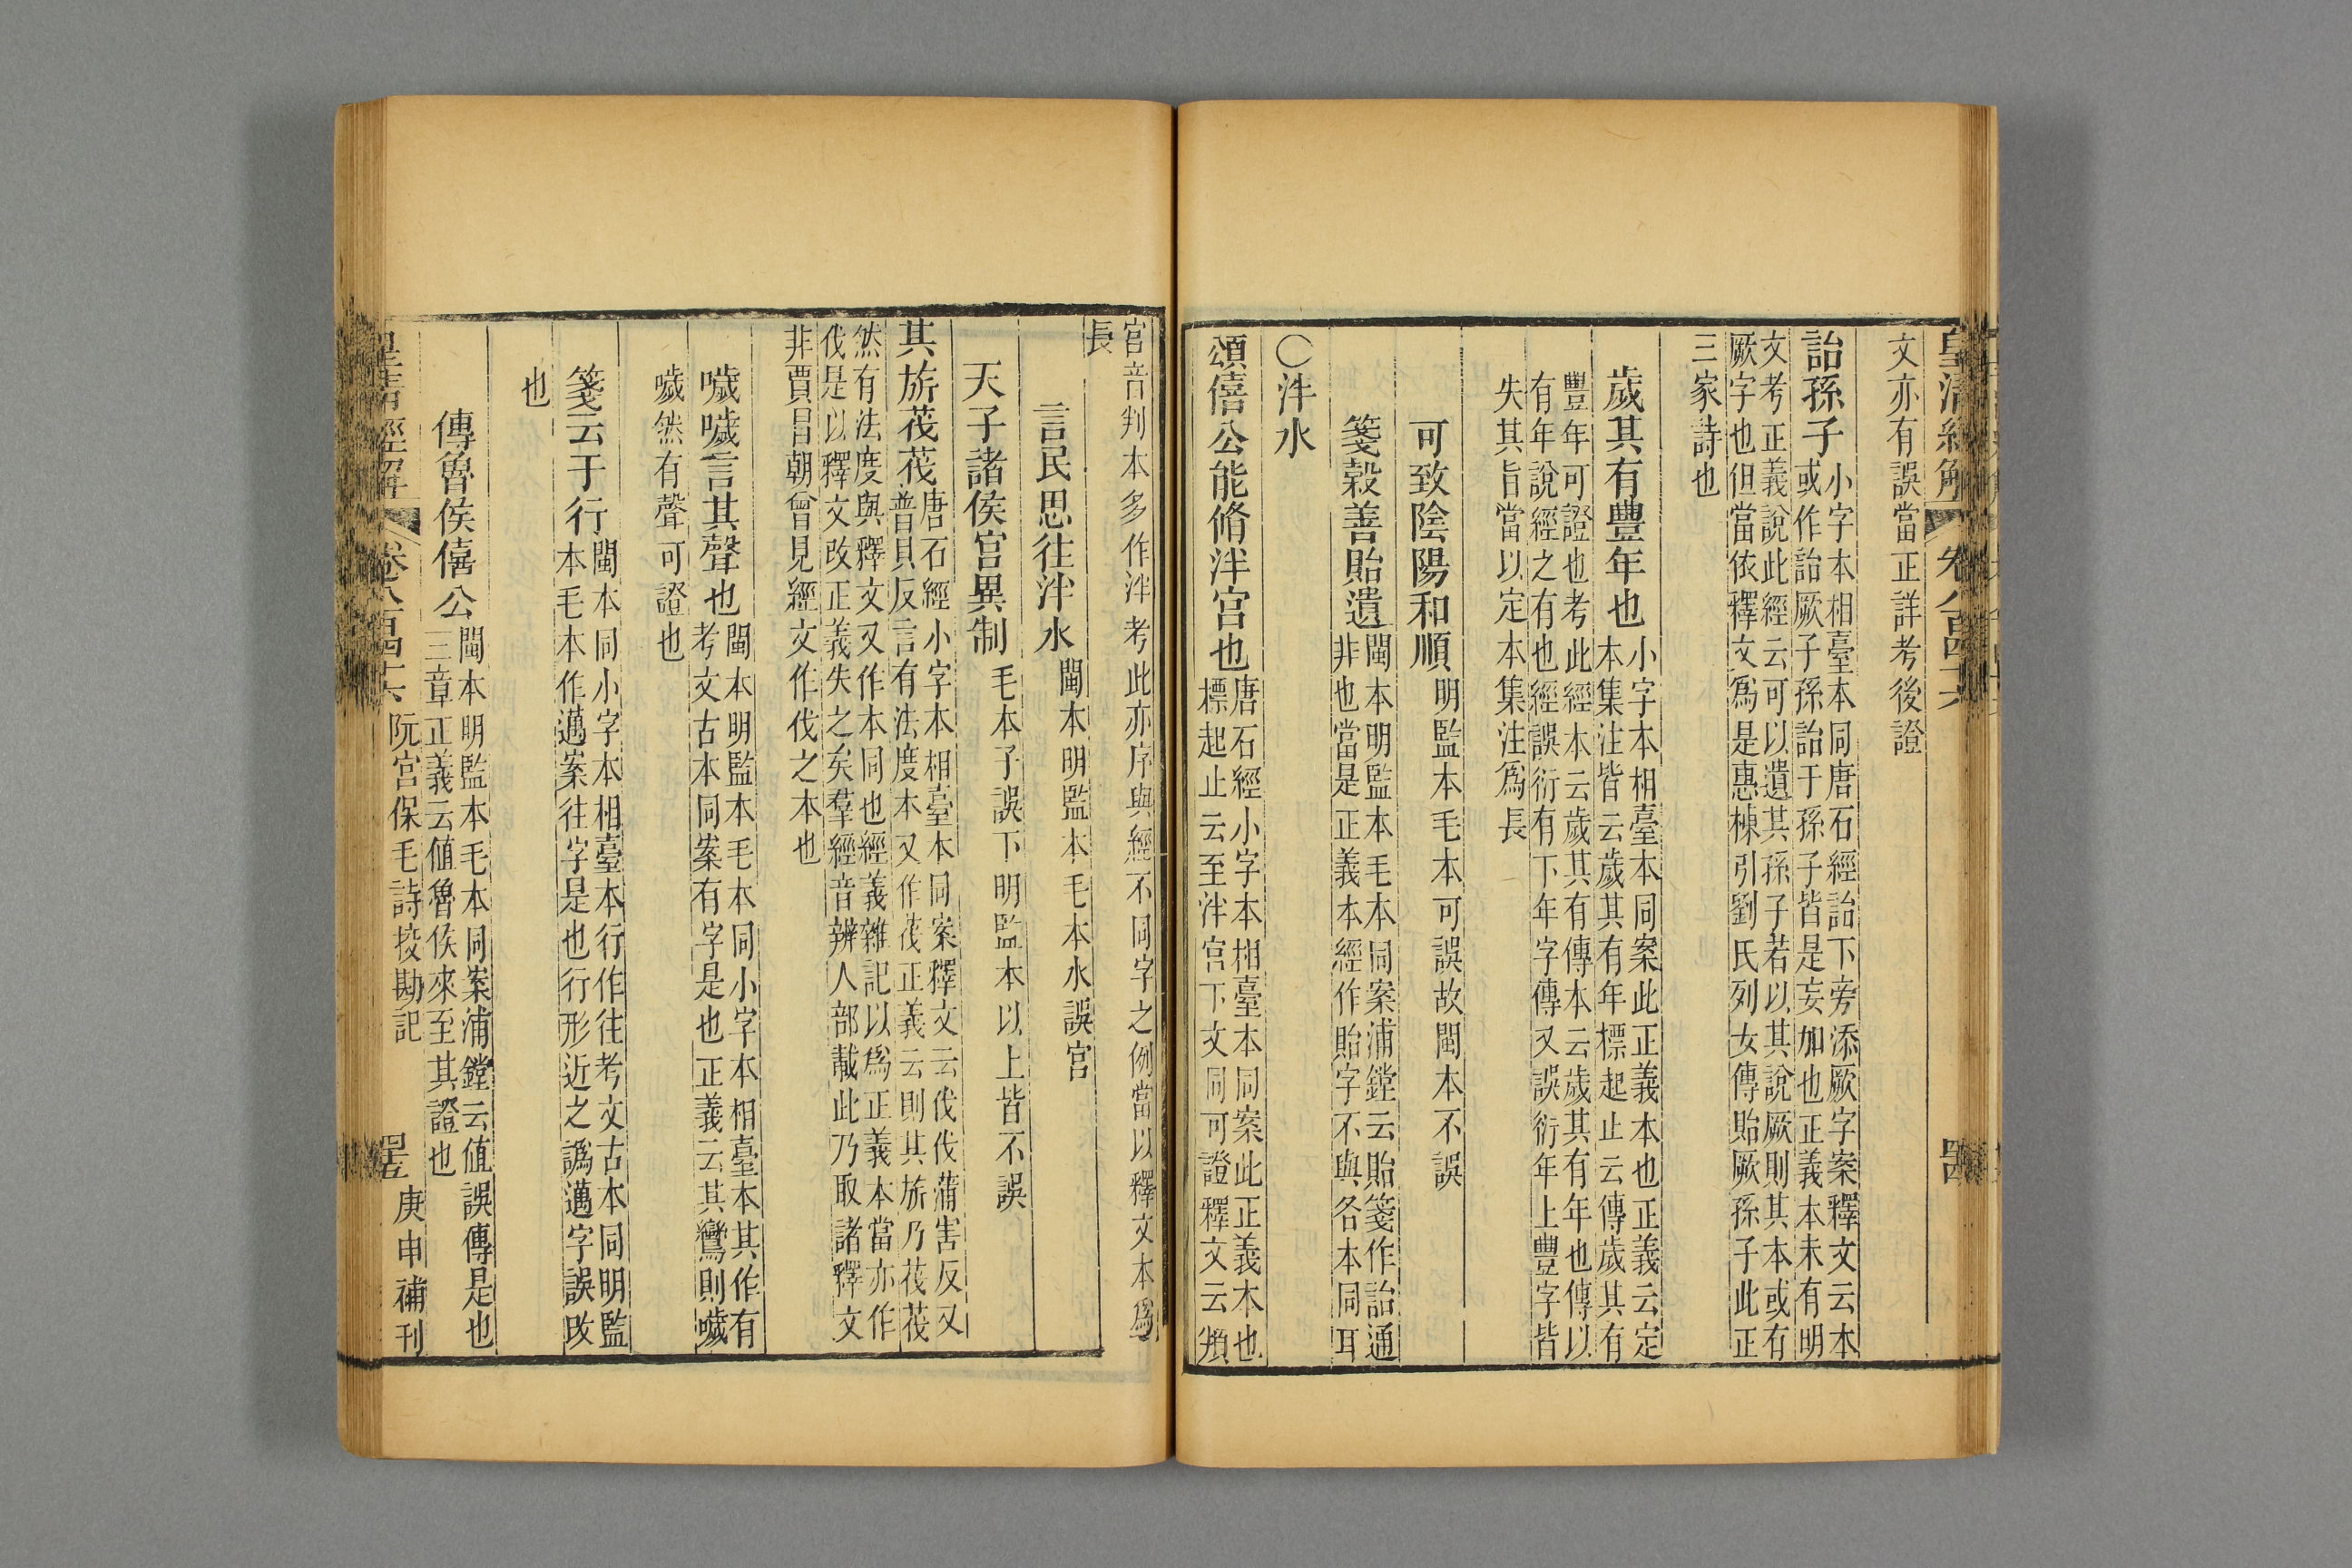 皇清經解 卷八百四十六
文亦有誤當正詳考後證
詒孫子小字本相臺本同唐石經詒下旁添厥字案釋文云本
或作詒厥子孫詒于孫子皆是妄加也正義本未有明
文考正義說此經云可以遺其孫子若以其說厥則其本或有
厥字也但當依釋文爲是惠棟引劉氏列女傳貽厥孫子此正
三家詩也
歲其有豐年也小字本相臺本同案此正義本也正義云定
本集注皆云歲其有年標起止云傳歲其有
豐年可證也考此經本云歲其有傳本云歲其有年也傳以
有年說經之有也經誤衍有下年字傳又誤衍年上豐字皆
失其旨當以定本集注爲長
可致陰陽和順明監本毛本可誤故閩本不誤
箋榖善貽遺閩本明監本毛本同案浦鏜云貽箋作詒通
非也當是正義本經作貽字不與各本同耳
〇泮水
頌僖公能脩泮宮也唐石經小字本相臺本同案此正義本也
標起止云至泮宮下文同可證釋文云頖
宮音判本多作泮考此亦序與經不同字之例當以釋文本爲
長
言民思往泮水閩本明監本毛本水誤宮
天子諸侯宮異制毛本子誤下明監本以上皆不誤
其旂茷茷唐石經小字本相臺本同案釋文云伐伐蒲害反又
普貝反言有法度本又作茷正義云則其旂乃茷茷
然有法度與釋文又作本同也經義雜記以爲正義本當亦作
伐是以釋文改正義失之矣羣經音辨人部載此乃取諸釋文
非賈昌朝曾見經文作伐之本也
噦噦言其聲也閩本明監本毛本同小字本相臺本其作有
考文古本同案有字是也正義云其鸞則噦
噦然有聲可證也
箋云于行閩本同小字本相臺本行作往考文古本同明監
本毛本作邁案往字是也行形近之譌邁字誤改
也
傳魯侯僖公閩本明監本毛本同案浦鏜云値誤傳是也
三章正義云値魯侯來至其證也
皇清經解 卷八百四十六 阮宮保毛詩挍勘記 庚申補刊